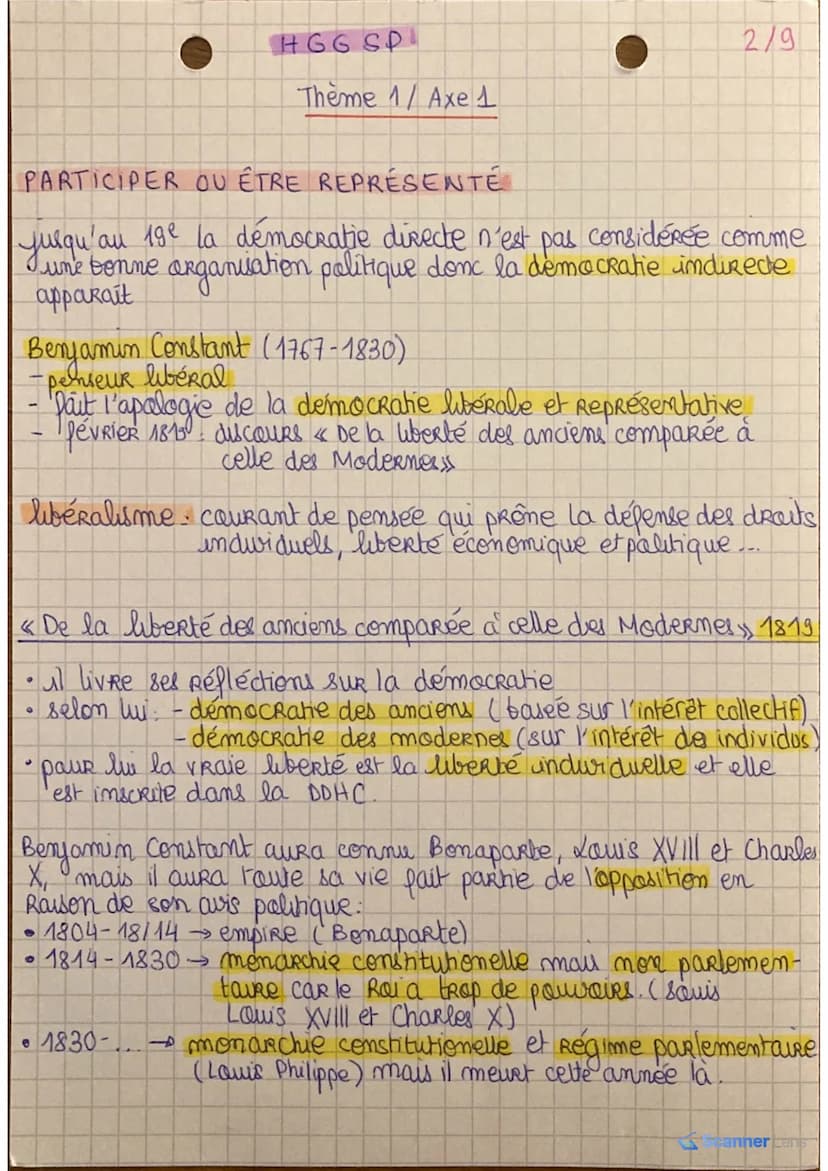 HGGSP
2/9
Thème 1 / Axe 1
PARTICIPER OU ÊTRE REPRÉSENTÉ
jusqu'au 19e la démocratie directe n'est pas considérée comme
une bonne organisation politique donc la démocratie indirecte
apparaît
Benjamin Constant (1767-1830)
- penseur libéral
- fait l'apologie de la démocratie libérale et représentative
- février 1819 : discours « De la liberté des anciens comparée à
celle des Modernes »
libéralisme : courant de pensée qui prône la défense des droits
individuels, liberté économique et politique ...
« De la liberté des anciens comparée à celle des Modernes » 1819
• il livre ses réfléctions sur la démocratie
• selon lui : - démocratie des anciens (basée sur l'intérêt collectif)
- démocratie des modernes (sur l'intérêt des individus)
• pour lui la vraie liberté est la liberté individuelle et elle
est inscrite dans la DDHC.
Benjamin Constant aura connu Bonaparte, Louis XVIII et Charles
X, mais il aura toute sa vie fait partie de l'opposition en
raison de son avis politique :
• 1804-18/14 → empire (Bonaparte)
• 1814-1830 → monarchie constitutionelle mais non parlemen-
taire car le Roi a trop de pouvoirs. (sous
Louis XVIII et Charles X)
• 1830-... → monarchie constitutionelle et régime parlementaire
(Louis Philippe) mais il meurt cette année là.
Scanner Lens